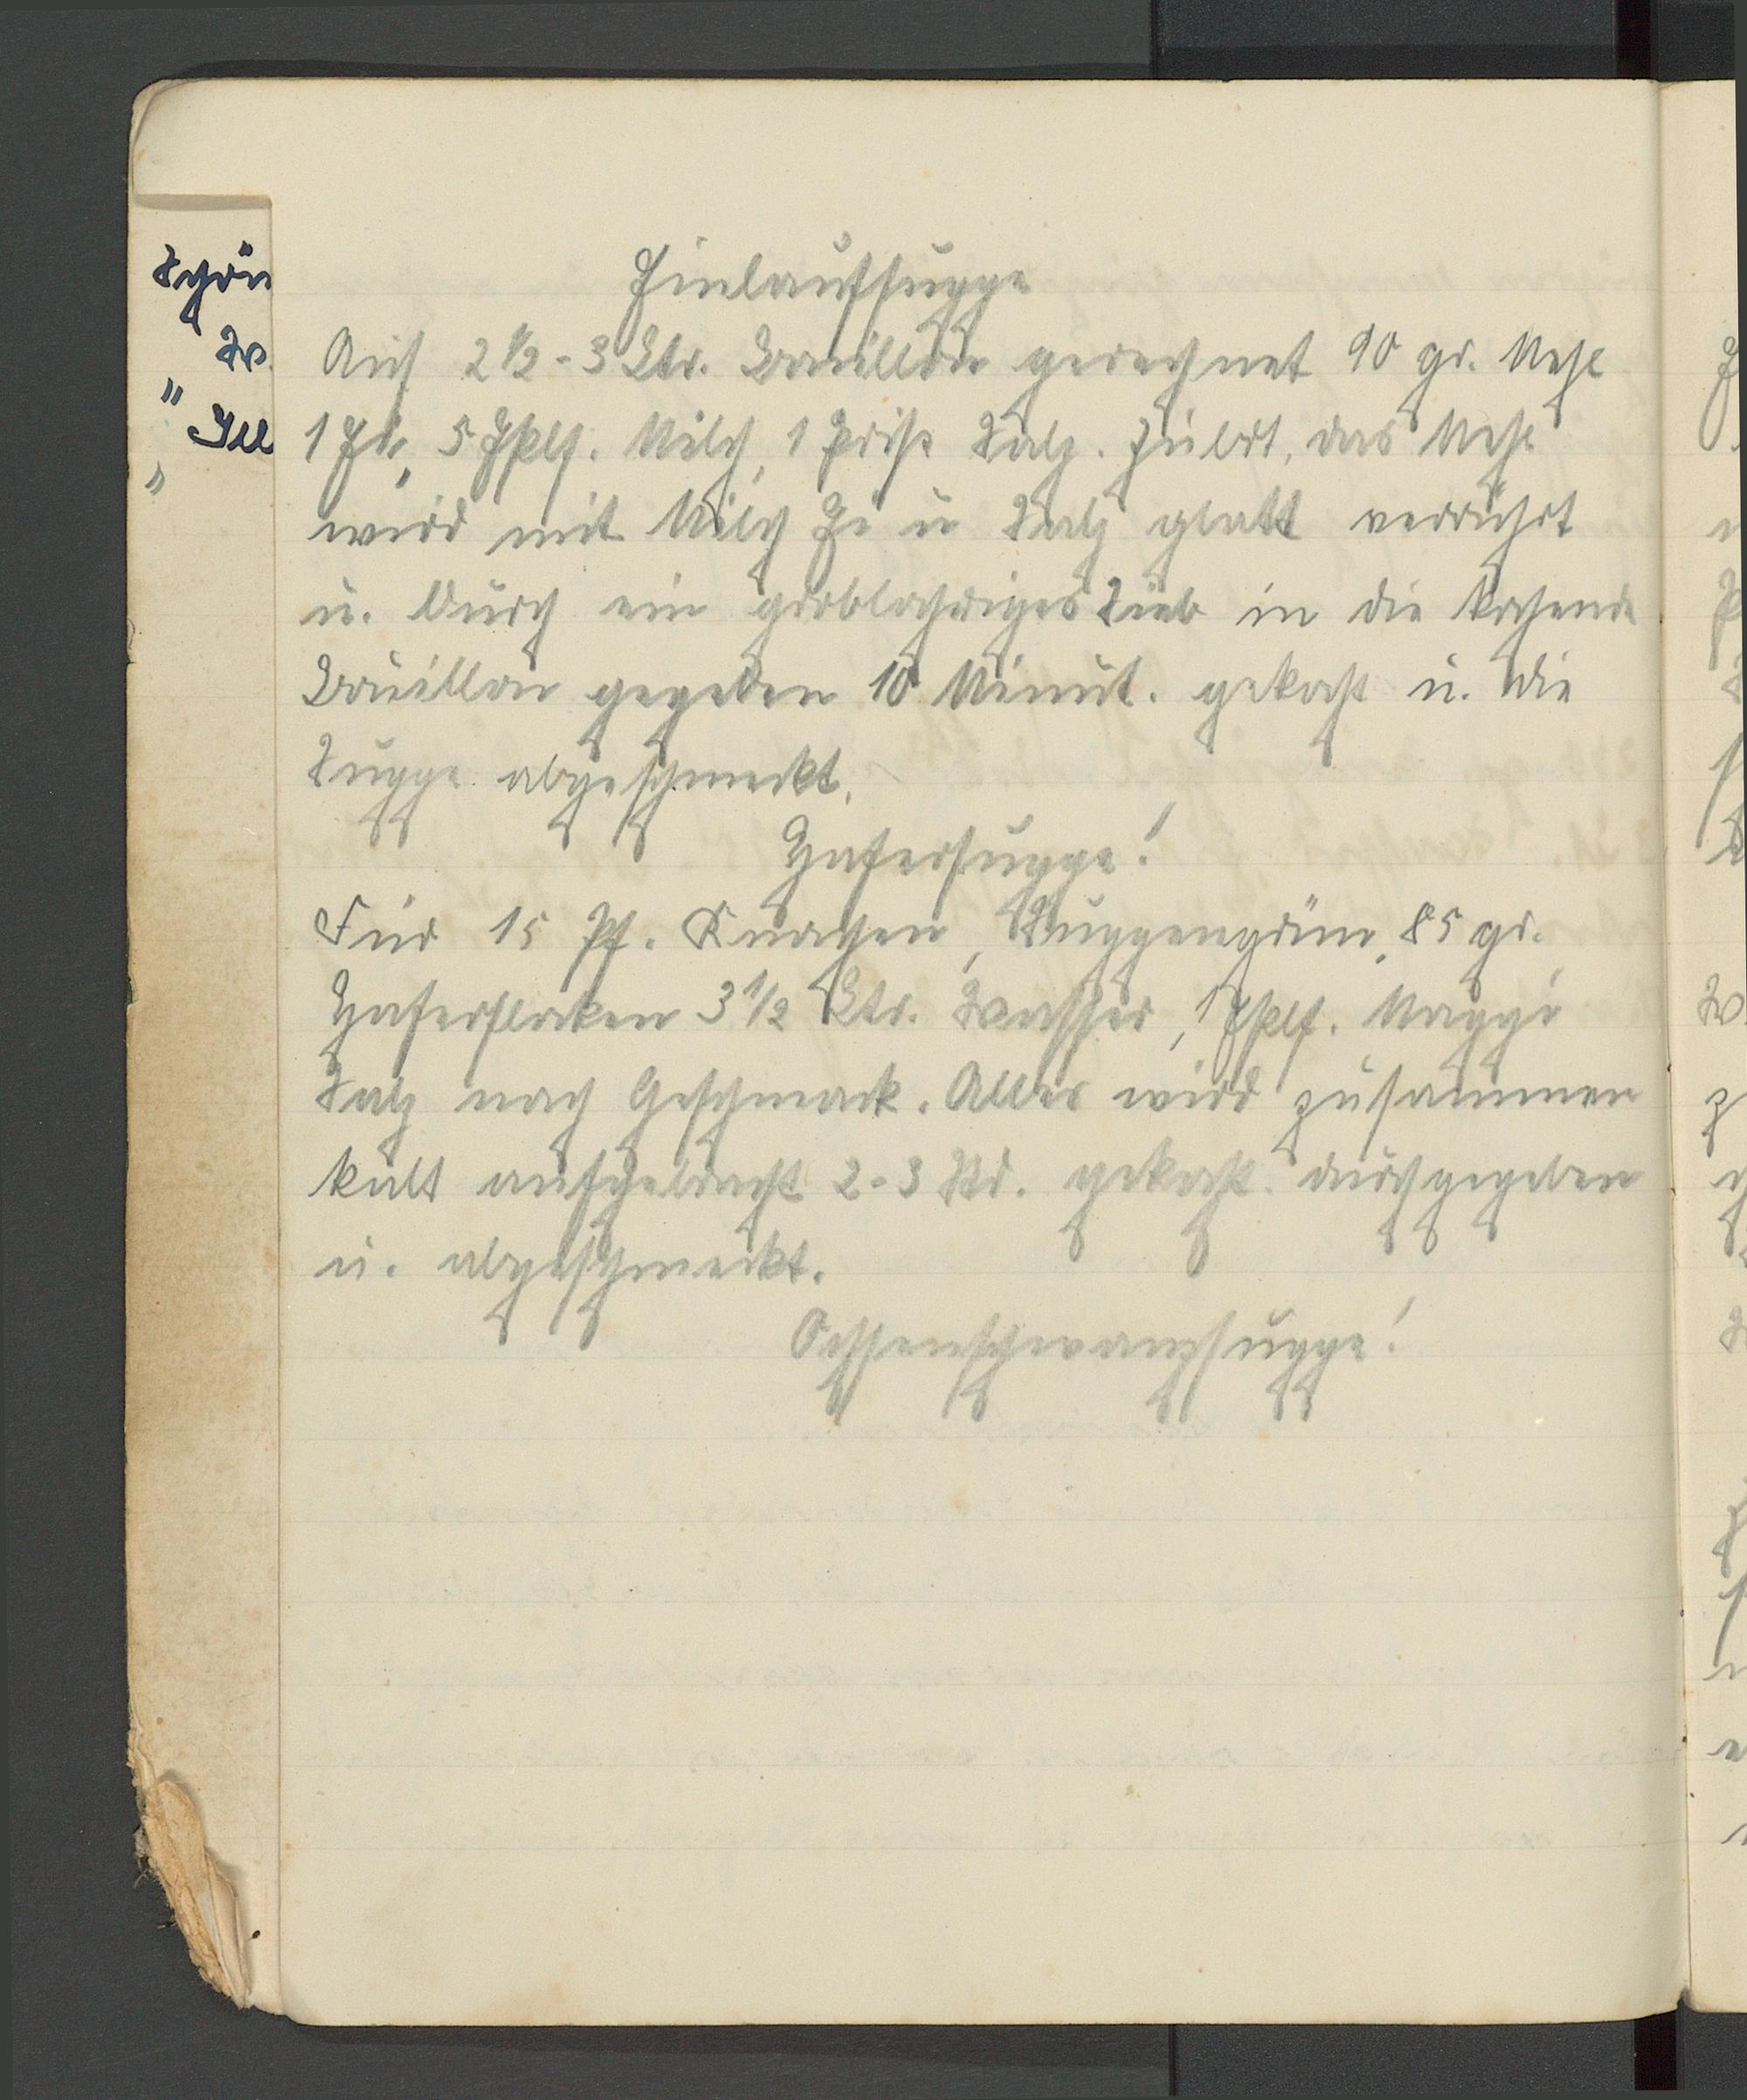 Schön
W.
" Ill
"
Einlaufsuppe
Auf 2 1/2 - 3 Ltr. Bouillon gerechnet 90 gr. Mehl
1 Ei, 5 Eßlf. Milch, 1 Prise Salz. Zubrt. das Mehl
wird mit Milch Ei u Salz glatt verrührt
u. durch ein groblochriges Sieb in die kochende
Bouillon gegeben 10 Minut. gekocht u. die
Suppe abgeschmeckt.
Hafersuppe!
Für 15 Pf. Knochen, Suppengrün, 85 gr.
Haferflocken 3 1/2 Ltr. Wasser, 1 Eßlf. Maggi
Salz nach Geschmack. Alles wird zusammen
kalt aufgebracht 2-3 Std. gekocht durchgegeben
u. abgeschmeckt.
Ochsenschwanzsuppe!